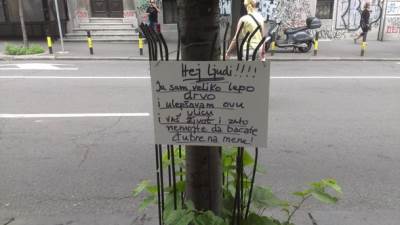 Hej Ljudi!!!!
Ja sam veliko lepo
drvo
i ulepšavam ovu
ulicu
i vaš život i zato
nemojte da bacate
đubre na mene!